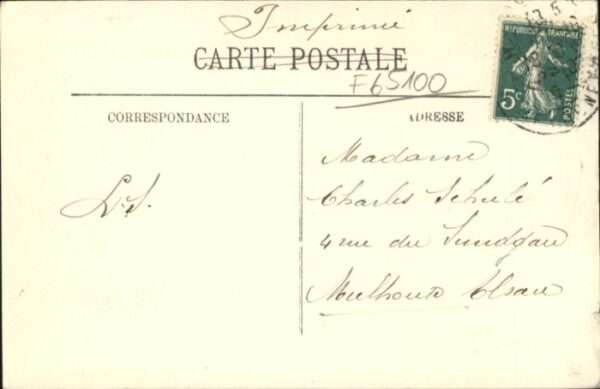 Imprimé
CARTE POSTALE
F65100
CORRESPONDANCE
ADRESSE
REPUBLIQUE FRANÇAISE
5c
POSTES
L.S.
Madame
Charles Schulé
4 rue du Sundgau
Mulhouse Alsace